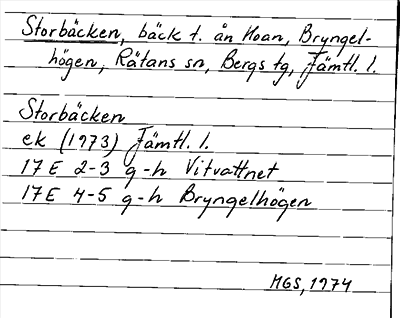 Storbäcken, bäck t. ån Hoan, Bryngel-
högen, Rätans sn, Bergs tg, Jämtl. l.
Storbäcken
ek (1973) Jämtl. l.
17E 2-3 g-h Vitvattnet
17E 4-5 g-h Bryngelhögen
MGS, 1974